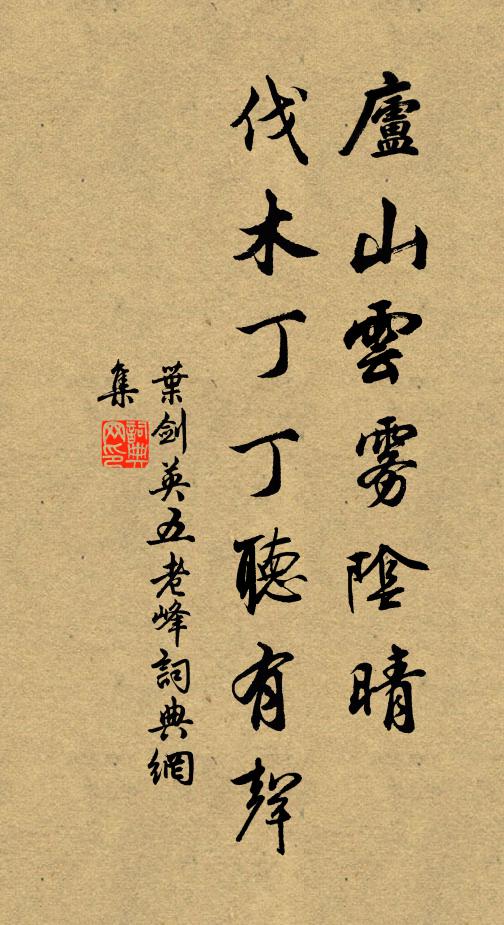 廬山雲雾陰晴
伐木丁丁聽有聲
葉劍英五老峰詞典網
集
詞典
网印